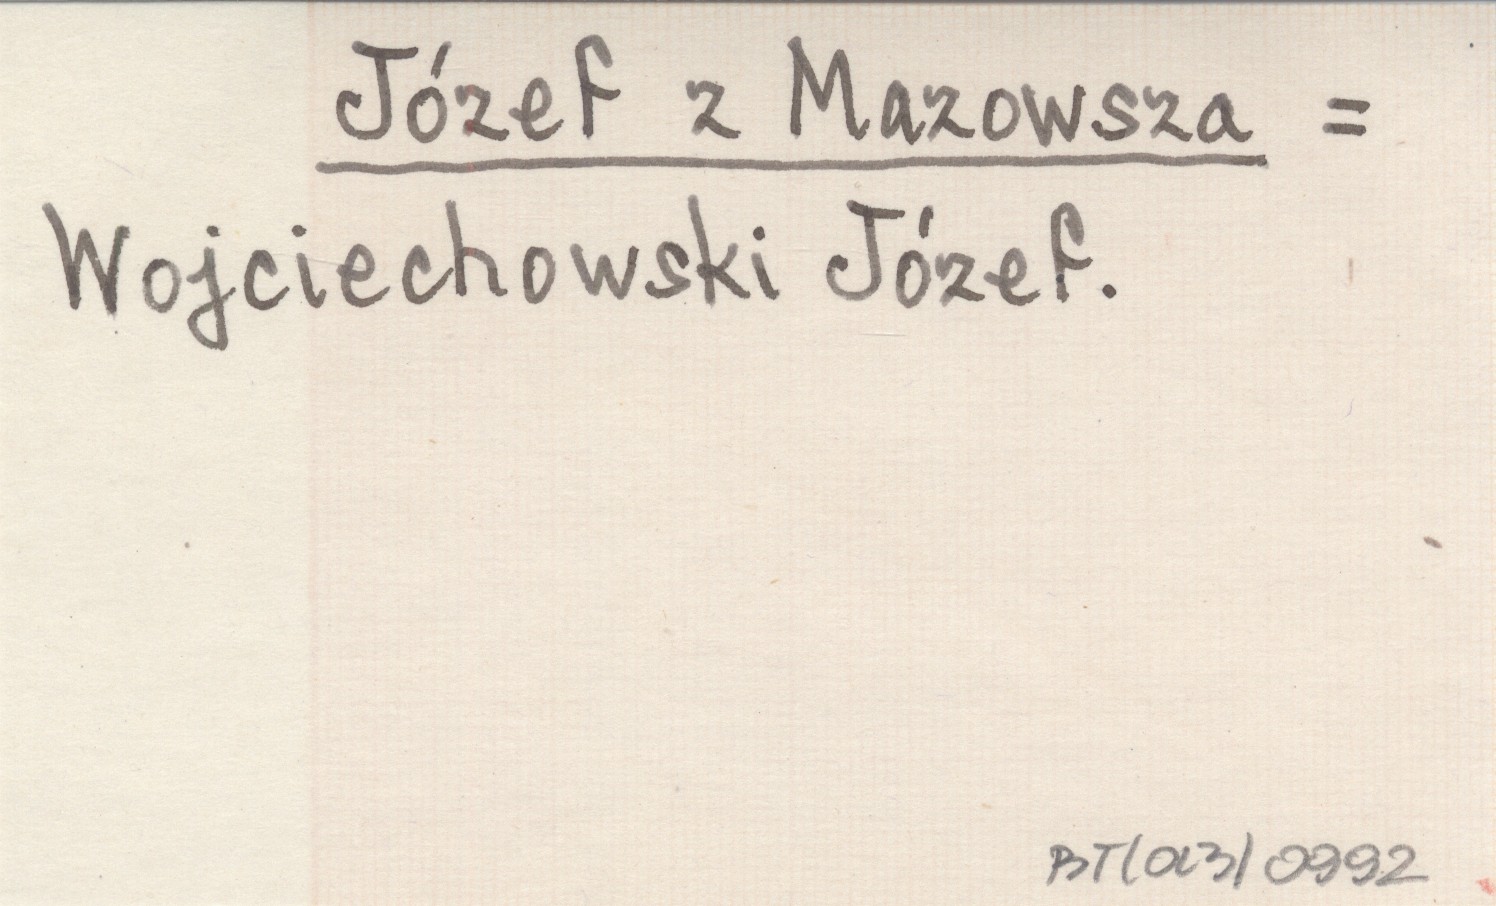 Józef z Mazowsza =
Wojciechowski Józef.
BT(013) 0992